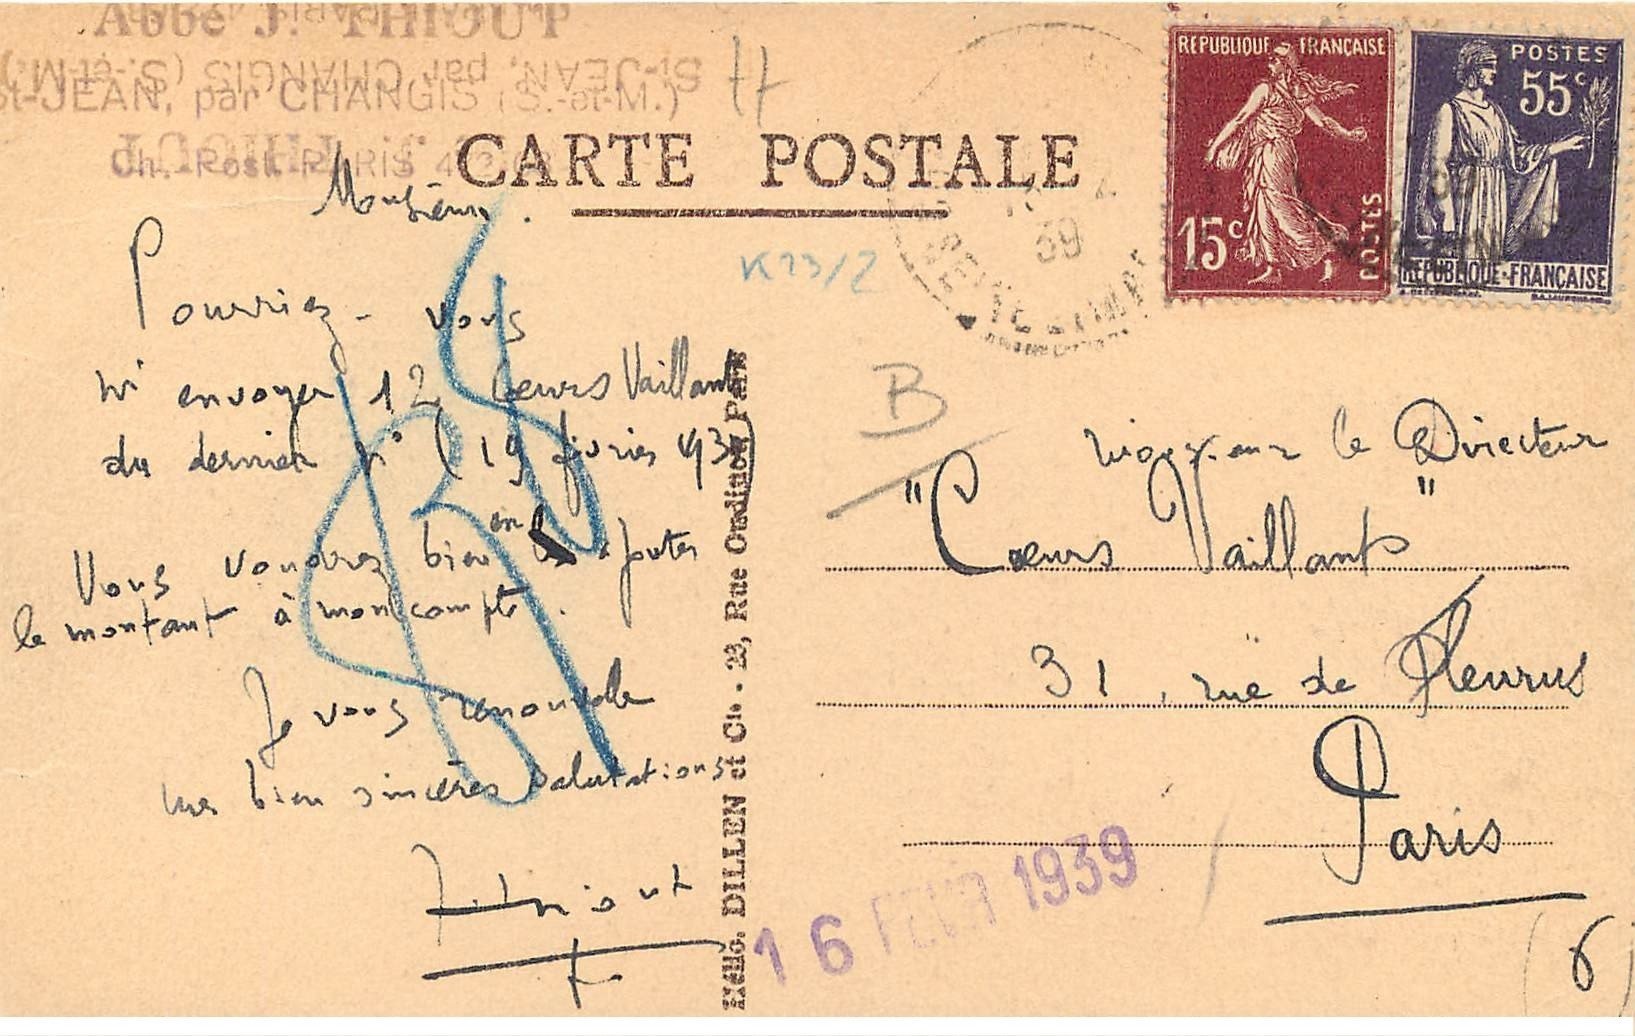 Abbé J. THIOUT
St-JEAN, par CHANGIS (S.-et-M.)
St-JEAN, par CHANGIS (S.-et-M.)
Ch. Post. PARIS
CARTE POSTALE
REPUBLIQUE FRANÇAISE
15c
POSTES
POSTES
55c
REPUBLIQUE-FRANÇAISE
39
SEINE
K23/2
B
Monsieur.
Pourriez-vous
m'envoyer 12 Cœurs Vaillants
du dernier N° (19 février 1939)
Vous voudrez bien en ajouter
le montant à mon compte.
Je vous renouvelle
mes bien sincères salutations
JThiout
Hélio. DILLEN et Cie. - 23, Rue Oudinot, Paris
Monsieur le Directeur
"Cœurs Vaillants"
31, rue de Fleurus
Paris
(6)
16 FEVR 1939